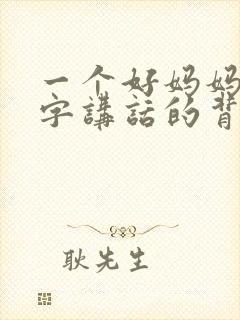 一个好妈妈
字講話的背
耿先生